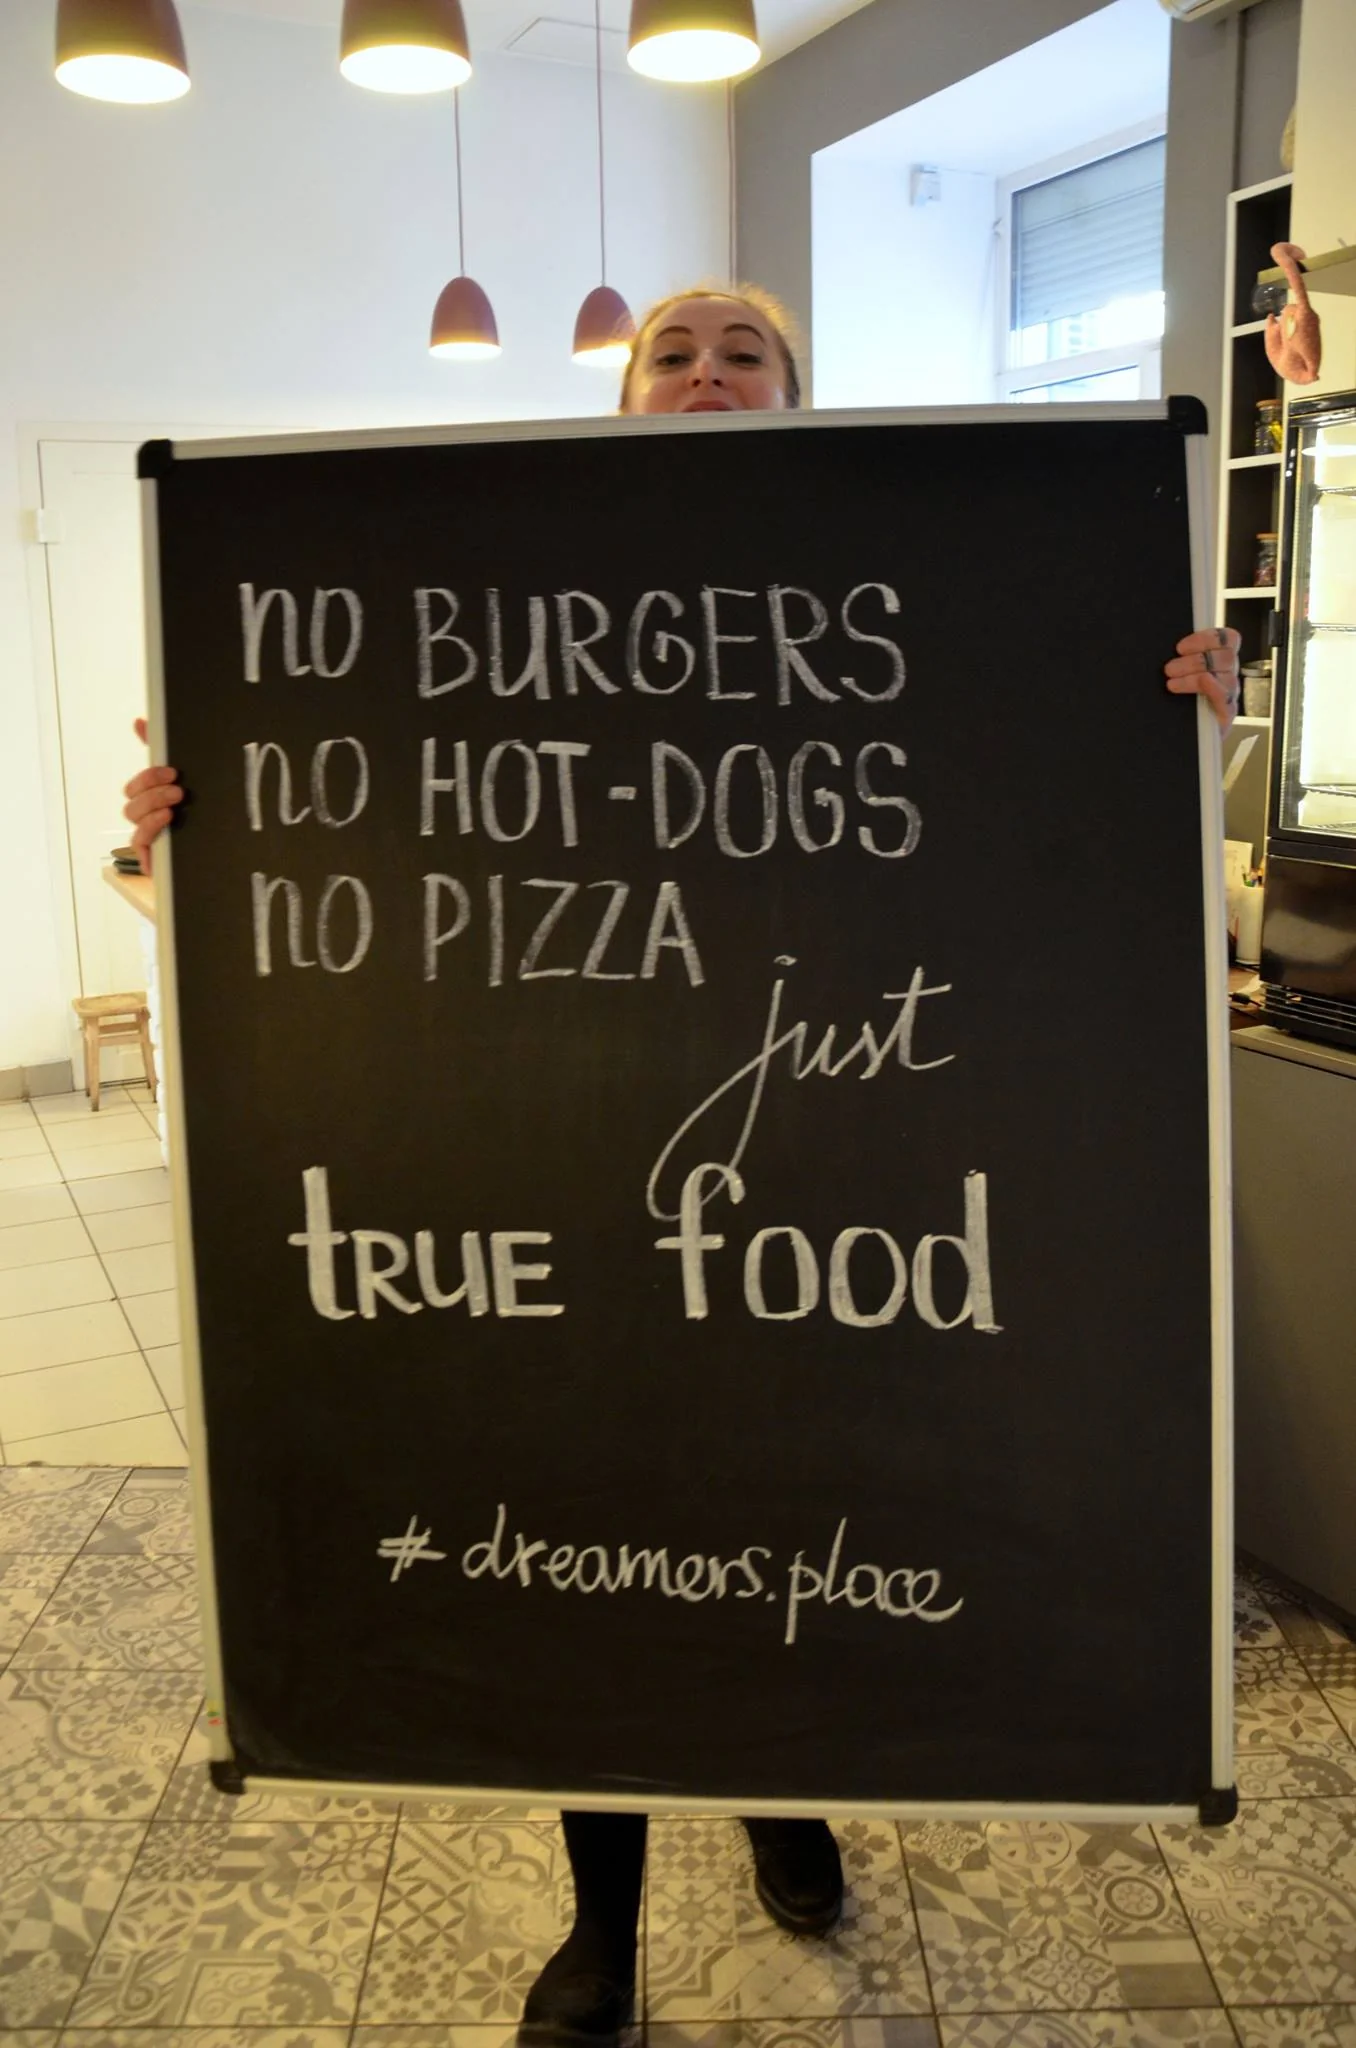 no BURGERS
no HOT-DOGS
no PIZZA
just
tRUE food
# dreamers.place